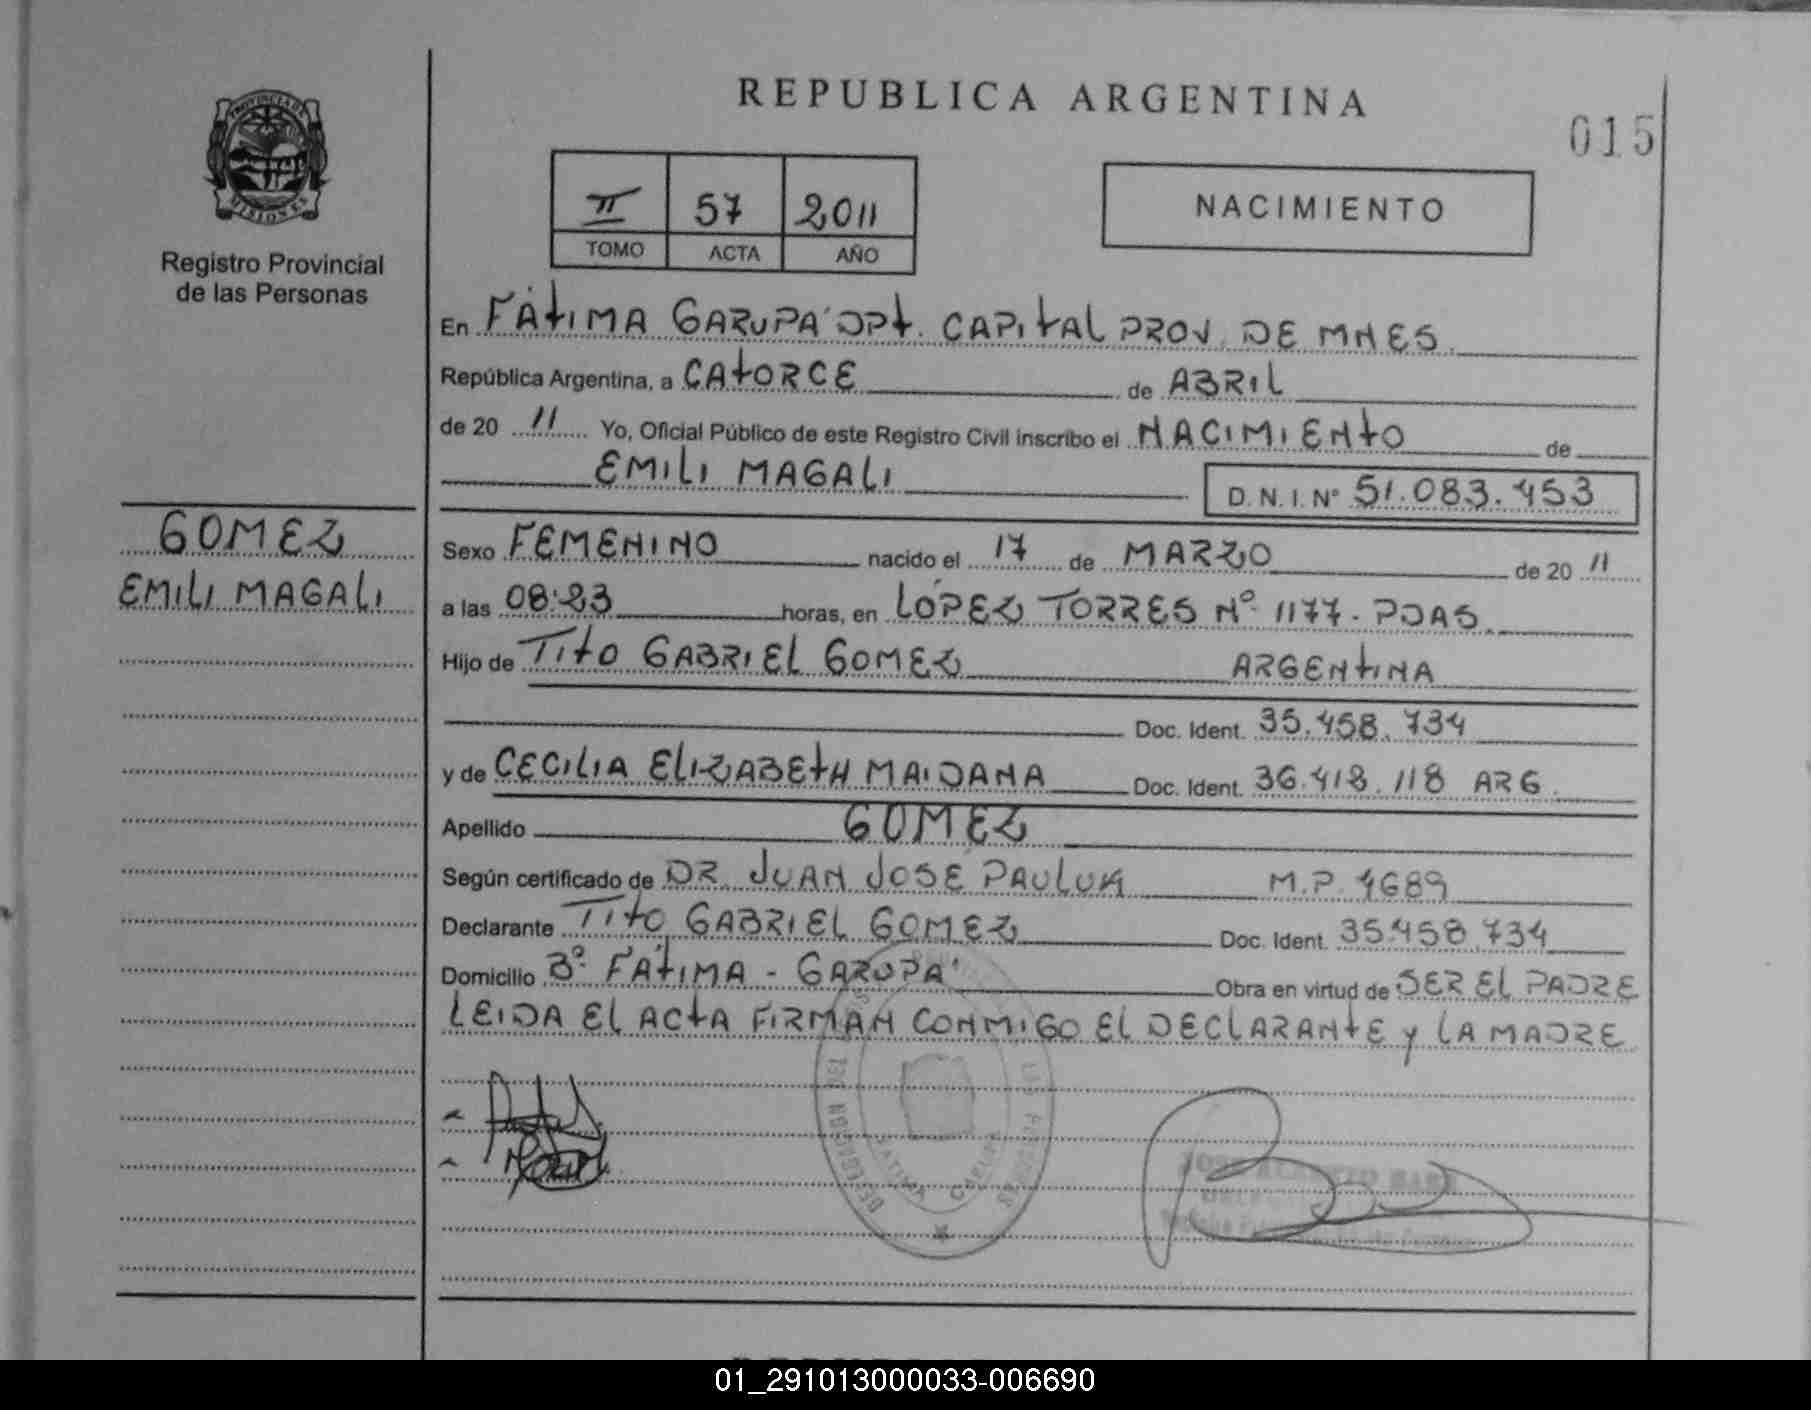 REPUBLICA ARGENTINA
015
PROVINCIA DE
MISIONES
Registro Provincial
de las Personas
II 57 2011
TOMO ACTA AÑO
NACIMIENTO
En FÁTIMA GARUPA' DPT. CAPITAL PROV. DE MNES.
República Argentina, a CATORCE de ABRIL
de 20 11 Yo, Oficial Público de este Registro Civil inscribo el NACIMIENTO de
EMILI MAGALI D.N.I. Nº 51.083.453
GOMEZ
EMILI MAGALI
Sexo FEMENINO nacido el 17 de MARZO de 20 11
a las 08:23 horas, en LÓPEZ TORRES Nº 1177 - PDAS.
Hijo de TITO GABRIEL GOMEZ ARGENTINA
Doc. Ident. 35.458.734
y de CECILIA ELIZABETH MAIDANA Doc. Ident. 36.418.118 ARG.
Apellido GOMEZ
Según certificado de DR. JUAN JOSÉ PAULUK M.P. 4689
Declarante TITO GABRIEL GOMEZ Doc. Ident. 35.458.734
Domicilio Bº FÁTIMA - GARUPA' Obra en virtud de SER EL PADRE
LEIDA EL ACTA FIRMAN CONMIGO EL DECLARANTE y LA MADRE
01_291013000033-006690